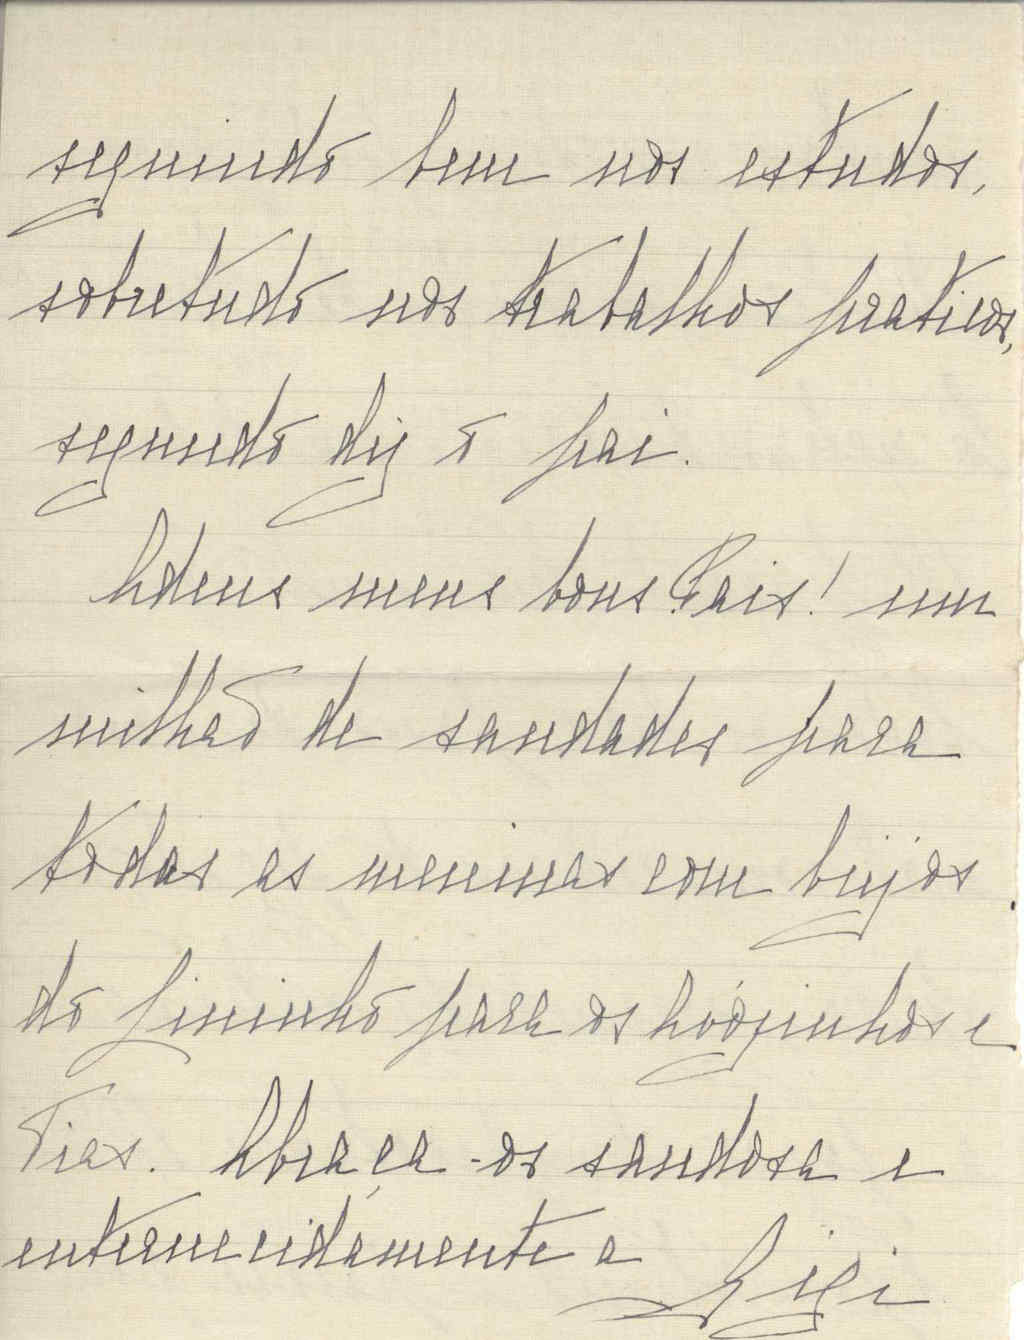 seguindo bem nos estudos,
sobretudo nos trabalhos praticos,
segundo diz o pai.
Adeus meus bons Pais! um
milhão de saudades para
todas as meninas com beijos
do Fininho para os Avózinhos e
Tias. Abraça-os saudosa e
enternecidamente a Gigi